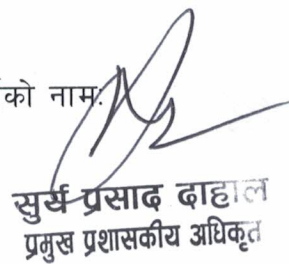 को नाम:
सुर्य प्रसाद दाहाल
प्रमुख प्रशासकीय अधिकृत